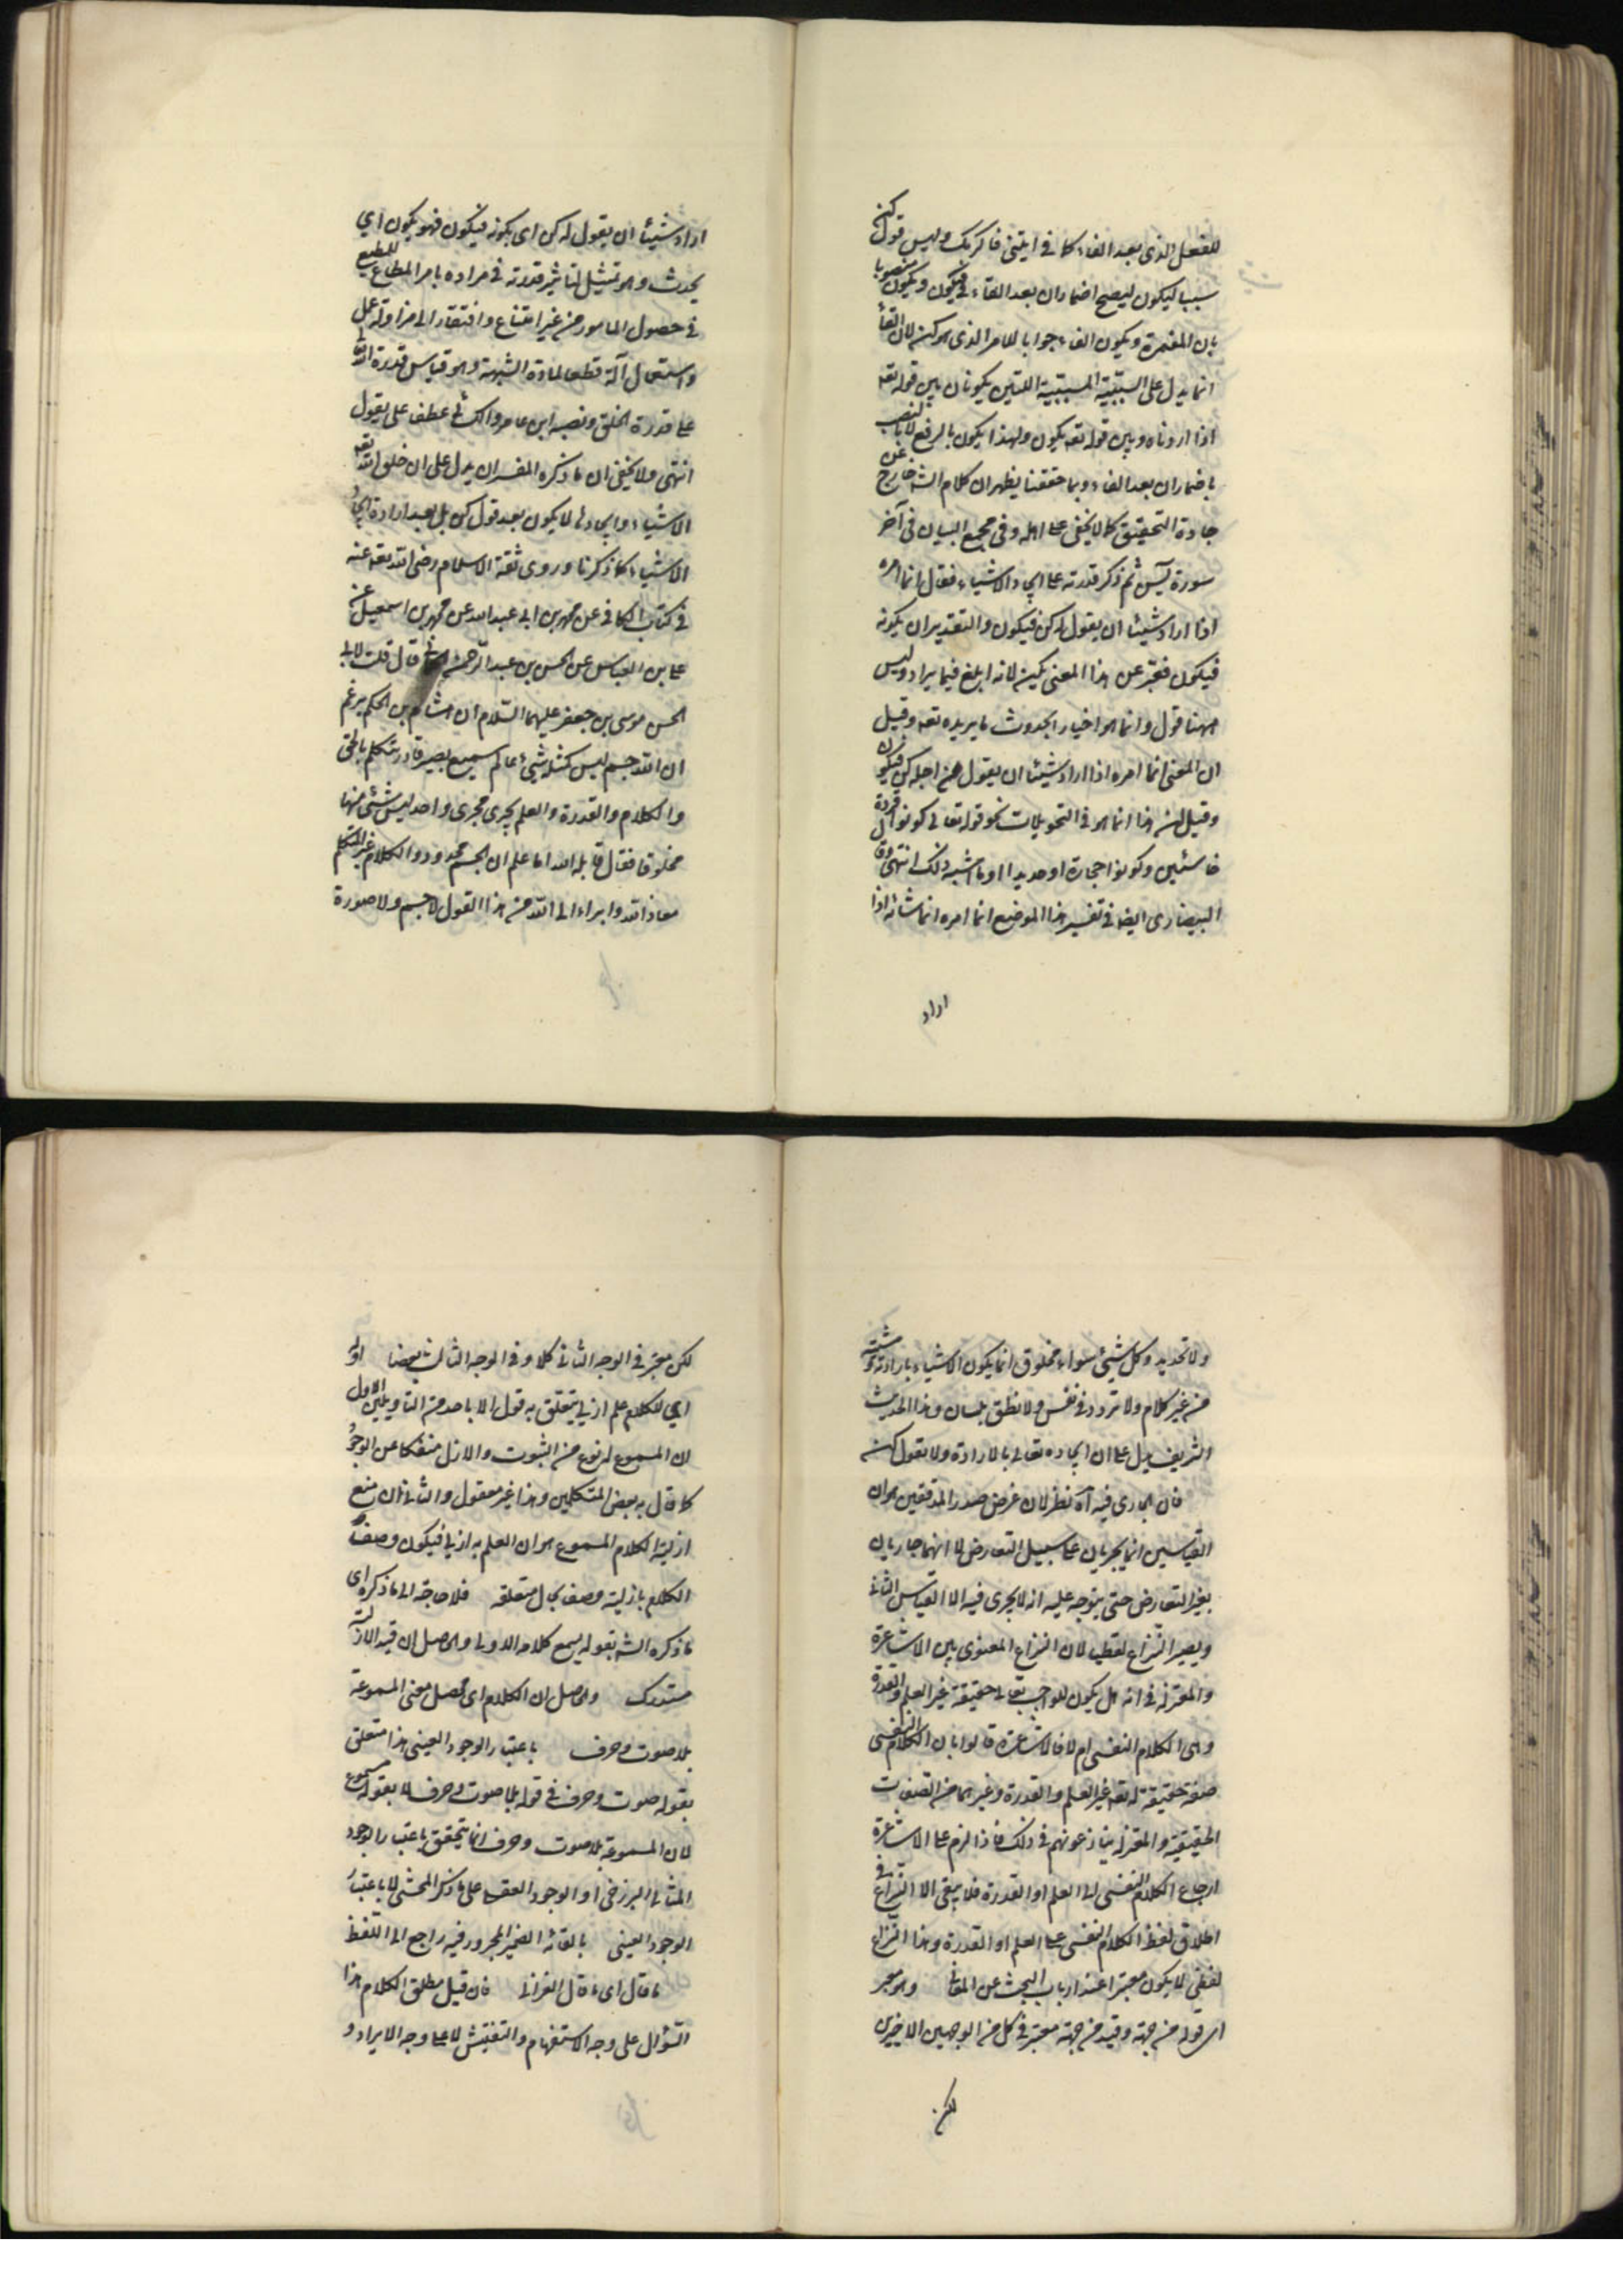 للفعل الذى بعد الفاء كما فى ايتنى فاكرمك وليس قول كن
سببا ليكون ليصح اضمار ان بعد الفاء فى فيكون ويكون منصوبا
بان المضمرة ويكون الفاء جوابا للامر الذى هو كن لان الفاء
انما يدل على السببية المسببية اللتين يكونان بين قوله تعه
اذا اردناه وبين قوله تعه يكون ولهذا يكون بالرفع لا بالنصب
باضمار ان بعد الفاء وبما حققنا يظهر ان كلام الشه خارج عن
جادة التحقيق كما لا يخفى على اهله وفى مجمع البيان فى آخر
سورة يس ثم ذكر قدرته على ايجاد الاشياء فقال انما امره
اذا اراد شيئا ان يقول له كن فيكون والتقدير ان يكونه
فيكون فعبر عن هذا المعنى بكن لانه ابلغ فيما يراد وليس
ههنا قول وانما هو اخبار بحدوث ما يريده تعه وقيل
ان المعنى انما امره اذا اراد شيئا ان يقول من اجله كن فيكون
وقيل ان هذا انما هو فى التحويلات نحو قوله تعالى كونوا قردة
خاسئين وكونوا حجارة او حديدا او ما اشبه ذلك انتهى وقال
البيضاوى ايضا فى تفسير هذا الموضع انما امره انما شانه اذا
اراد
اراد شيئا ان يقول له كن اى يكونه فيكون فهو يكون اي
يحدث وهو تمثيل لتاثير قدرته فى مراده بامر المطاع للمطيع
فى حصول المامور من غير امتناع وافتقار الى مزاولة عمل
واستعمال آلة قطعا لمادة الشبهة وهو قياس قدرة الله
على قدرة الخلق ونصبه ابن عامر والكسائى عطف على يقول
انتهى ولا يخفى ان ما ذكره المفسران يدل على ان خلق الله تعه
الاشياء وايجادها لا يكون بعد قول كن بل بعد ارادة ايجاد
الاشياء كما ذكرنا وروى ثقة الاسلام رضى الله تعه عنه
فى كتاب الكافى عن محمد بن ابى عبد الله عن محمد بن اسمعيل عن
على بن العباس عن الحسن بن عبد الرحمن الحمانى قال قلت لابى
الحسن موسى بن جعفر عليهما السلام ان هشام بن الحكم يزعم
ان الله جسم ليس كمثله شيئ عالم سميع بصير قادر متكلم ناطق
والكلام والقدرة والعلم يجرى مجرى واحد ليس شئى منها
مخلوقا فقال قاتله الله اما علم ان الجسم محدود والكلام غير المتكلم
معاذ الله وابراء الى الله من هذا القول لا جسم ولا صورة
ولا تحديد وكل شيئ سواه مخلوق انما يكون الاشياء بارادته ومشيته
من غير كلام ولا تردد فى نفس ولا نطق بلسان وهذا الحديث
الشريف يدل على ان ايجاده تعالى بالارادة ولا يقول كن
فان الجارى فيه آه نظر لان غرض صدر المدققين هو ان
القياسين انما يجريان على سبيل التعارض لا انهما جاريان
بغير التعارض حتى يتوجه عليه انه لا يجرى فيه الا القياس الثانى
ويصير النزاع لفظيا لان النزاع المعنوى بين الاشاعرة
والمعتزله فى انه هل يكون للواجب تعالى حقيقة غير العلم والقدرة
وهى الكلام النفسى ام لا فالاشاعرة قالوا بان الكلام النفسى
صفة حقيقة له تعه غير العلم والقدرة وغيرهما من الصفات
الحقيقية والمعتزلة ينازعونهم فى ذلك فاذا لزم على الاشاعرة
ارجاع الكلام النفسى الى العلم او القدرة فلا يبقى الا النزاع فى
اطلاق لفظ الكلام النفسى على العلم او القدرة وهذا النزاع
لفظى لا يكون معتبرا عند ارباب البحث عن المعانى وهو معبر
اى قوله من جهة وقيد من جهة معتبر فى كل من الوجهين الاخيرين
لكن
لكن معتبر فى الوجه الثانى كلا وفى الوجه الثالث بعضا اوله
اي للكلام علم ازلي يتعلق به قول الا باحد من التاويلين الاول
ان المسموع له نوع من الثبوت والازل منفكا عن الوجود
كما قال به بعض المتكلمين وهذا غير معقول والثانى ان منع
ازلية الكلام المسموع هو ان العلم به ازلي فيكون وصف
الكلام بازلية وصف بحال متعلقه فلا حاجة الى ما ذكره اى
ما ذكره الشه بقوله يسمع كلامه الازلى والحاصل ان قيد الازلية
مستدرك والحاصل ان الكلام اى محصل معنى المسموعة
بلا صوت وحرف باعتبار الوجود العينى هذا متعلق
بقوله صوت وحرف فى قوله بلا صوت وحرف لا بقوله مسموع
لان المسموعة بلا صوت وحرف انما يتحقق باعتبار الوجود
المثالى البرزخى او الوجود العقلى على ما ذكر المحشى لا باعتبار
الوجود العينى بالقائه الضمير المجرور فيه راجع الى اللفظ
ما قال اى ما قال الغزالى فان قيل مطلق الكلام هذا
السؤال على وجه الاستفهام والتفتيش لا على وجه الايراد و